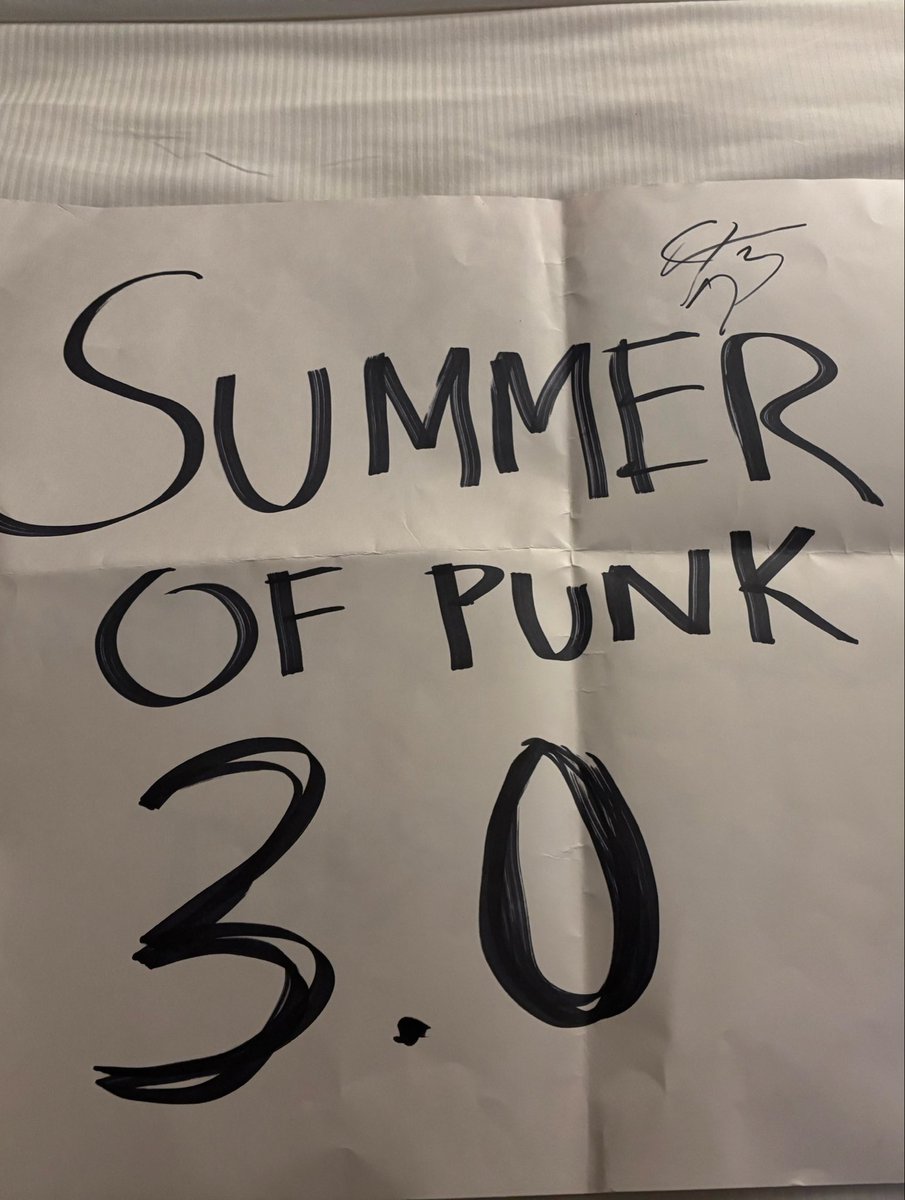 SUMMER
OF PUNK
3.0